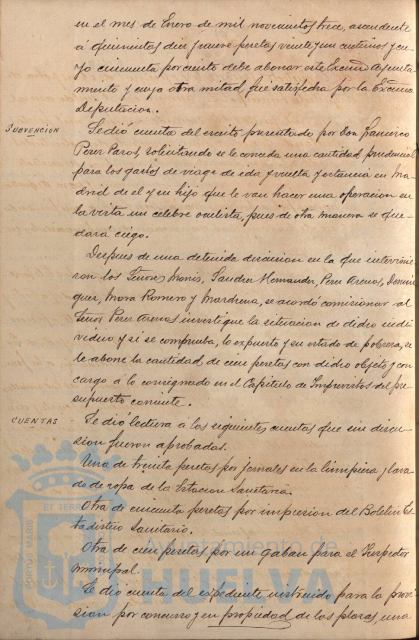 en el mes de Enero de mil novecientos trece, ascendente
á quinientas diez y nueve pesetas veinte y un centimos y cu-
yo cincuenta por ciento debe abonar este Excmo Ayunta
miento y cuya otra mitad, fué satisfecha por la Excma
Diputacion.
SUBVENCION
Se dió cuenta del escrito presentado por Don
Perez solicitando se le conceda una cantidad prudencial
para los gastos de viage de ida y vuelta y estancia en Ma
drid de el y un hijo que le van hacer una operacion en
la vista un celebre oculista, pues de otra manera se que
dará ciego.
Despues de una detenida discusion en la que intervinie
ron los Señores Sanchez Hernandez, Perez Domin
guez, Mora Romero y se acordó comisionar al
Señor Perez investigue la situacion de dicho indi
viduo y si se comprueba, lo expuesto y su estado de pobreza, se
le abone la cantidad de cien pesetas con dicho objeto y con
cargo á lo consignado en el Capitulo de Imprevistos del pre
supuesto corriente.
CUENTAS
Se dió lectura á las siguientes cuentas que sin discu
sion fueron aprobadas.
Una de treinta pesetas por jornales en la limpieza y lava
do de ropa de la Estacion Sanitaria.
Otra de cincuenta pesetas por impresion del Boletin Es
tadistico Sanitario.
Otra de cien pesetas por un gaban para el Inspector
municipal.
Se dió cuenta del expediente instruido para la provi
sion por concurso y en propiedad de las plazas, una
Ayuntamiento de
HUELVA